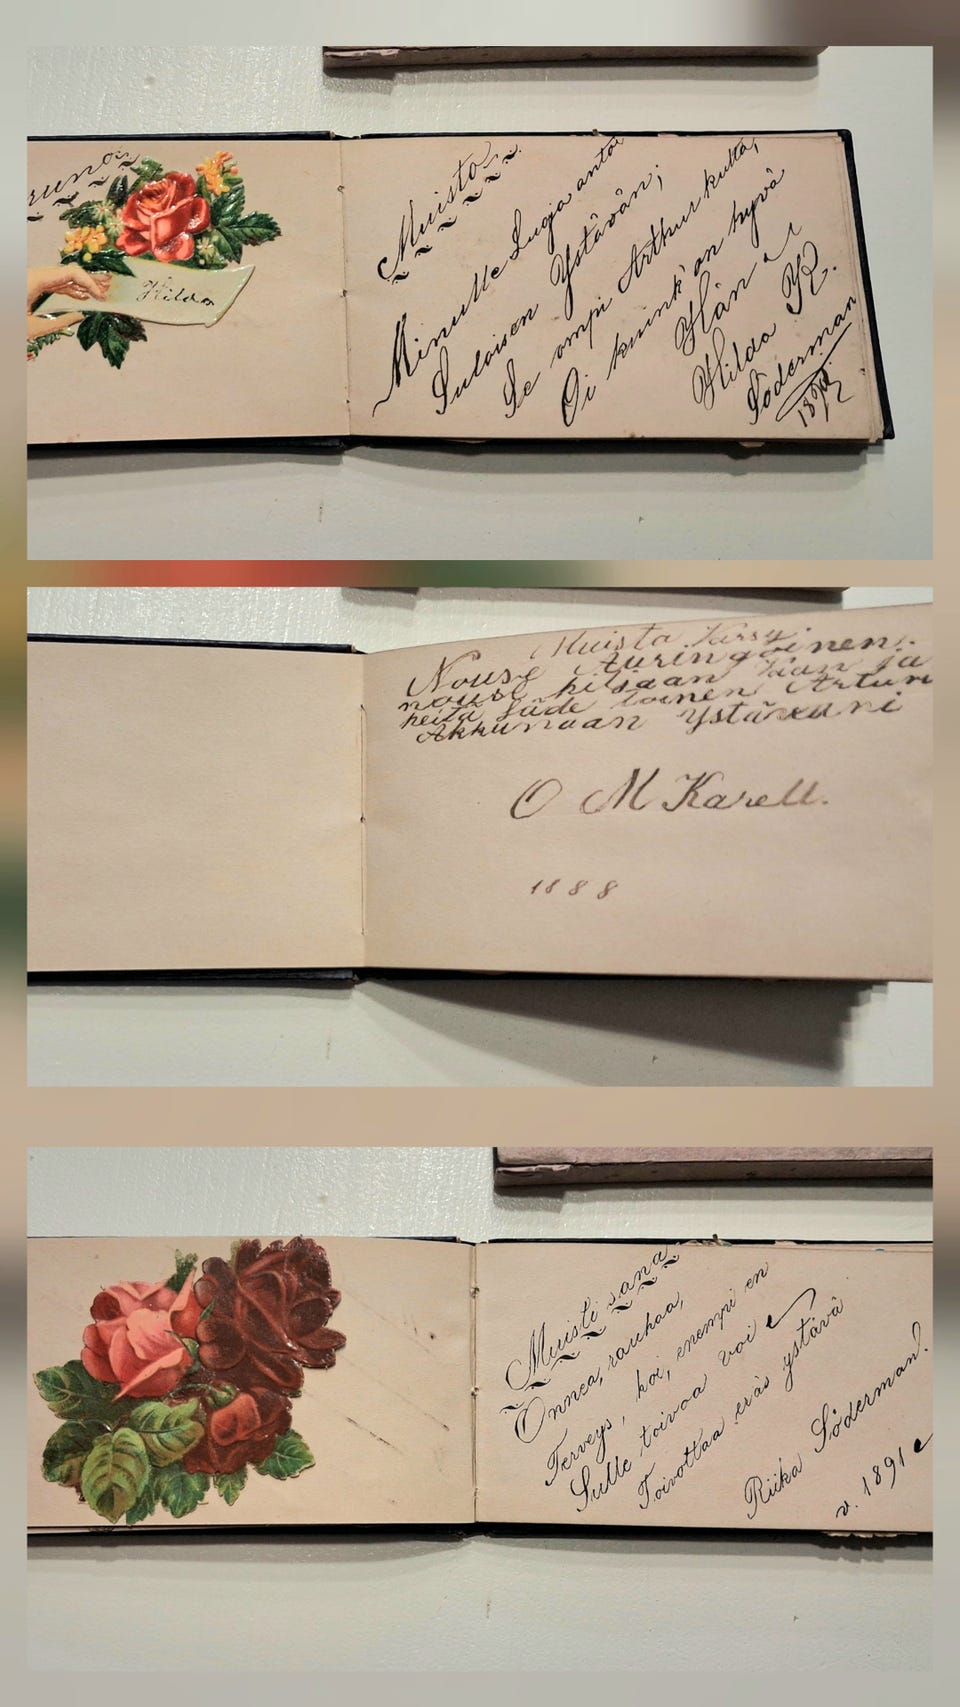 Hilda
Muisto.
Minulle Luoja antoi
Suloisen Ystävän;
Se ompi Arthur kulta,
Oi kuink' on hyvä
Hän
Hilda K
Söderman
Muisto
Nouse Auringoinen.
nouse kilsaan Kuun ja
heitä Säde toinen Arturi
Akkunaan Ystäväni
O M Karell.
1888
Muisti sana
Onnea, rauhaa,
Terveys, koi, enempi en
Sulle toivoa voi
Toivottaa eräs ystävä
Riika Söderman.
v. 1891